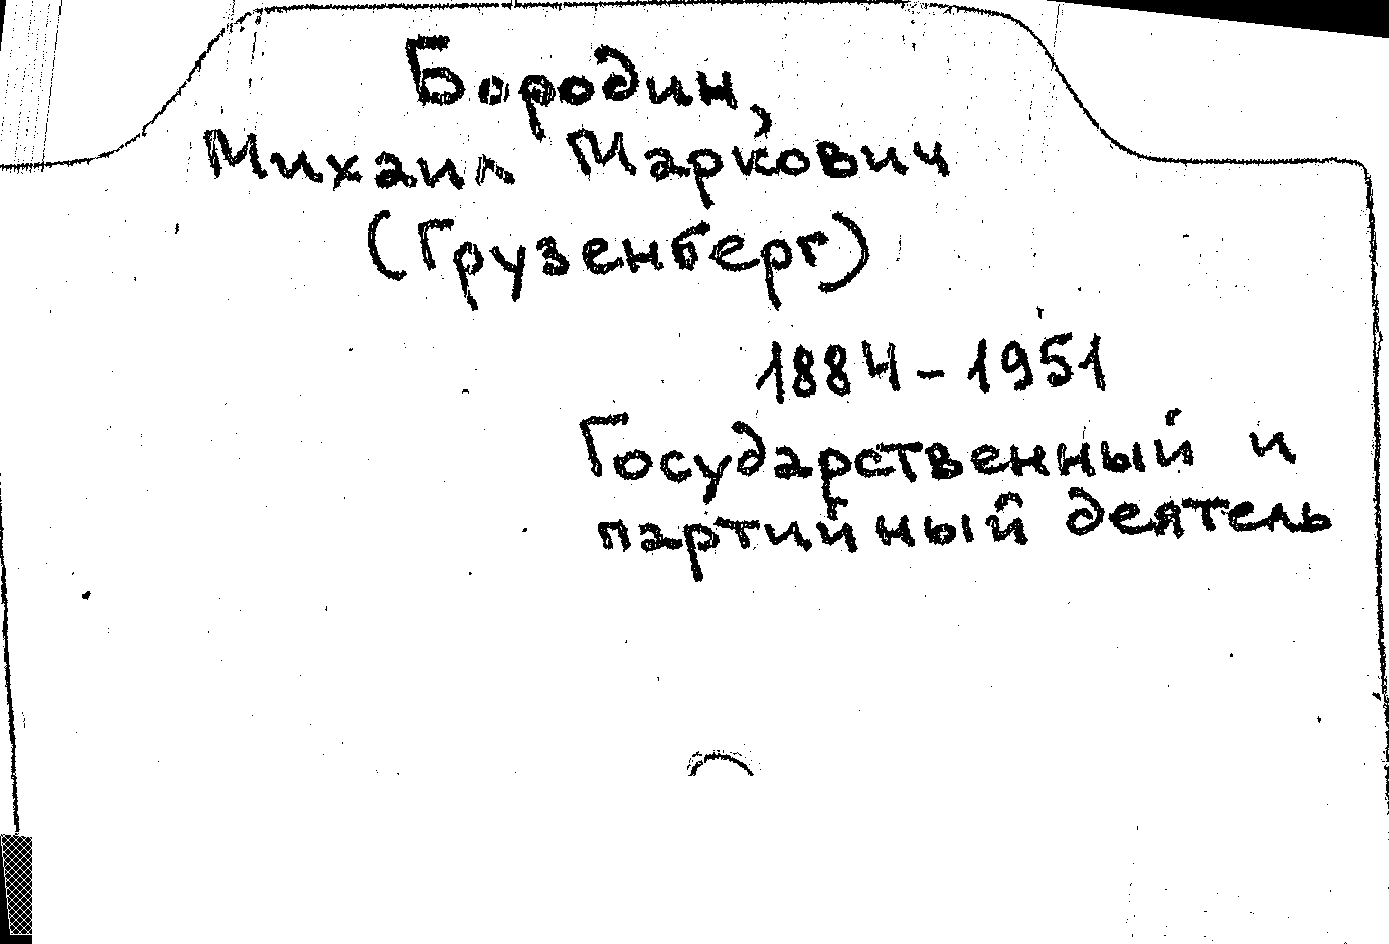 Бородин,
Михаил Маркович
(Грузенберг)
1884-1951
Государственный и
партийный деятель